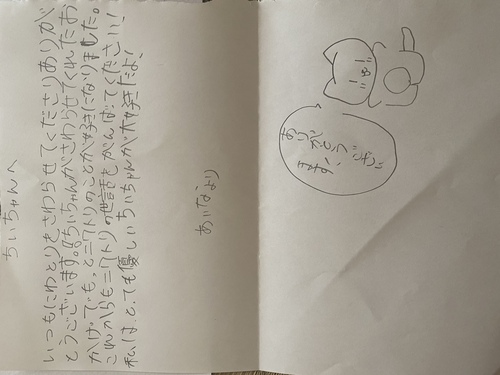 ちいちゃんへ
いつもにわとりをさわらせてくださりありが
とうございます。ちいちゃんがさわらせてくれたお
かげでもっとニワトリのことが好きになりました。
これからもニワトリの世話をがんばてください!
私は、とても優しいちいちゃんが大好きだよ!
あいなより
ありがとうござい
ます。